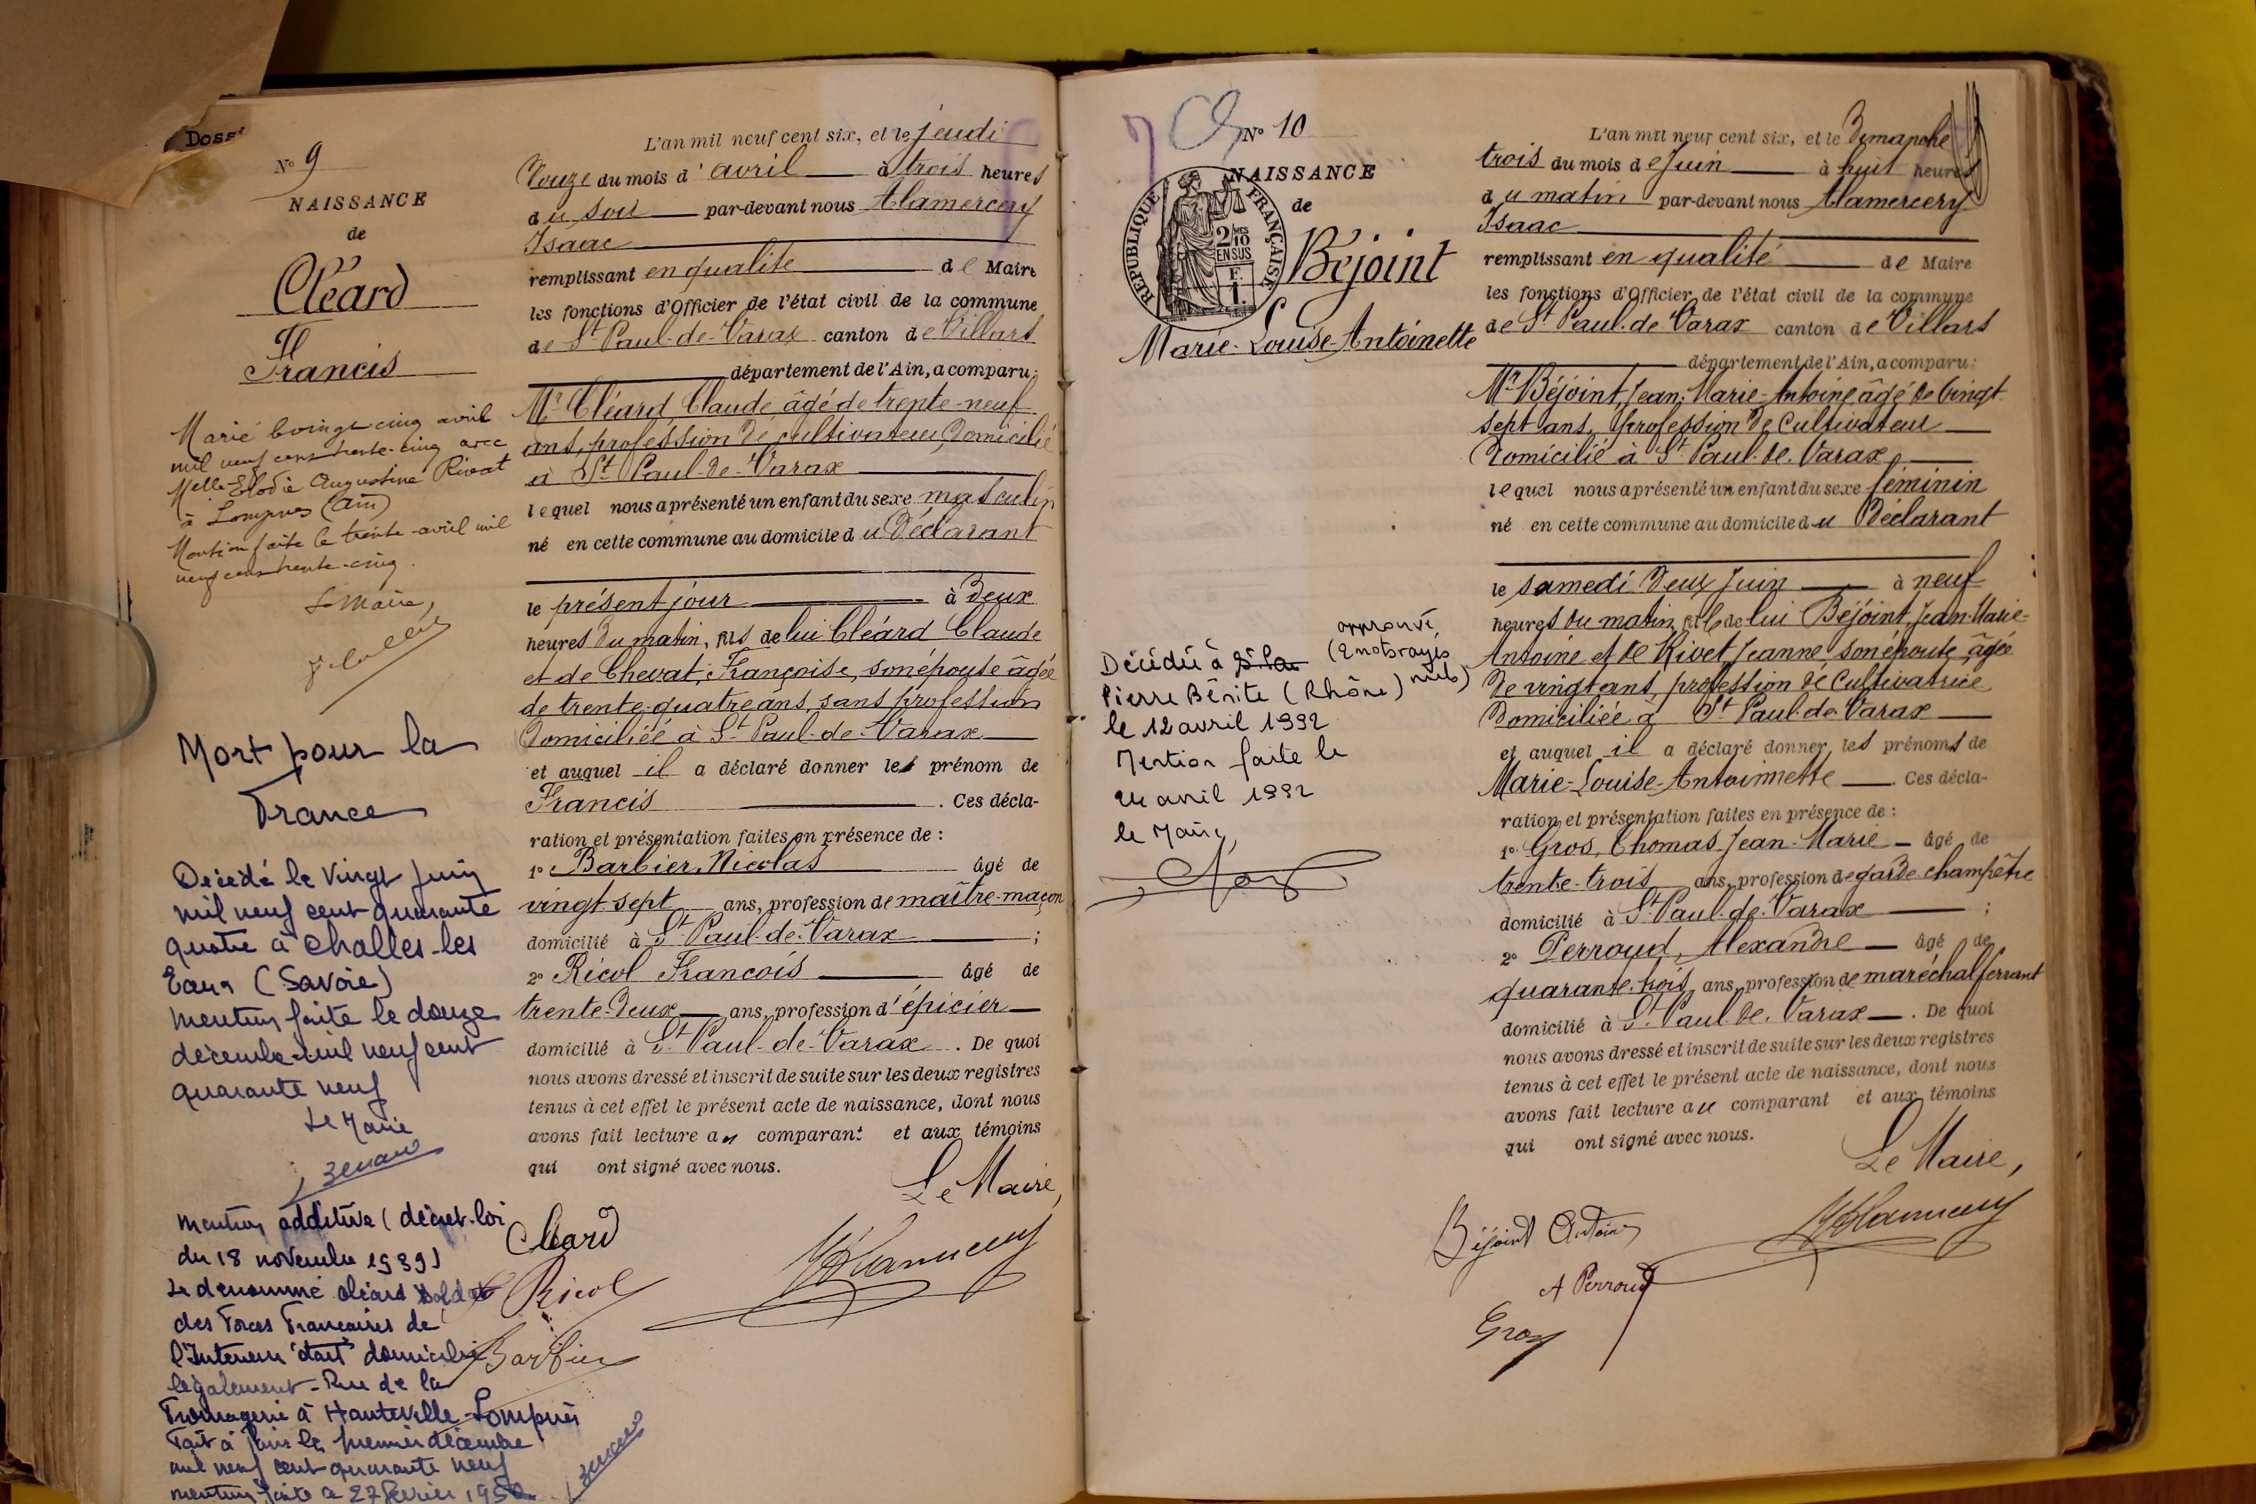 Doss
N° 9
NAISSANCE
de
Cléard
Francis
Marié le vingt cinq avril
mil neuf cent trente-cinq avec
Melle Elodie Augustine Rivat
à Lompnes (Ain)
Mention faite le trente avril mil
neuf cent trente-cinq.
Le Maire,
Mort pour la
France
Décédé le vingt juin
mil neuf cent quarante
quatre à Challes-les
Eaux (Savoie)
mention faite le douze
décembre mil neuf cent
quarante neuf
Le Maire
mention additive (décret-loi
du 18 novembre 1939)
Le dénommé Cléard soldat
des Forces Françaises de
l'Intérieur était domicilié
légalement - Rue de la
Fromagerie à Hauteville-Lompnès
Fait à Paris le premier décembre
mil neuf cent quarante neuf
mention faite le 27 février 1950
L'an mil neuf cent six, et le jeudi
Douze du mois d'avril à trois heures
du soir par-devant nous Alamercery
Isaac
remplissant en qualité de Maire
les fonctions d'Officier de l'état civil de la commune
de St Paul-de-Varax canton de Villars
département de l'Ain, a comparu:
Mr Cléard Claude âgé de trente-neuf
ans, profession de cultivateur, Domicilié
à St Paul-de-Varax
lequel nous a présenté un enfant du sexe masculin
né en cette commune au domicile du Déclarant
le présent jour à Deux
heures du matin, fils de lui Cléard Claude
et de Chevat, Françoise, son épouse âgée
de trente-quatre ans, sans profession
Domiciliée à St Paul-de-Varax
et auquel il a déclaré donner les prénom de
Francis . Ces décla-
ration et présentation faites en présence de :
1° Barbier, Nicolas âgé de
vingt-sept ans, profession de maître-maçon
domicilié à St Paul-de-Varax ;
2° Ricol François âgé de
trente-Deux ans, profession d'épicier
domicilié à St Paul-de-Varax . De quoi
nous avons dressé et inscrit de suite sur les deux registres
tenus à cet effet le présent acte de naissance, dont nous
avons fait lecture au comparant et aux témoins
qui ont signé avec nous.
Le Maire,
Cléard
Ricol
Alamercery
Barbier
N° 10
NAISSANCE
de
RÉPUBLIQUE FRANÇAISE
2/10
EN SUS
Béjoint
Marie-Louise-Antoinette
approuvé
Décédée à (2 mots rayés
nuls)
Pierre Bénite (Rhône)
le 12 avril 1992
Mention faite le
24 avril 1992
le Maire,
L'an mil neuf cent six, et le Dimanche
trois du mois de Juin à huit heures
du matin par-devant nous Alamercery
Isaac
remplissant en qualité de Maire
les fonctions d'Officier de l'état civil de la commune
de St Paul-de-Varax canton de Villars
département de l'Ain, a comparu:
Mr Béjoint, Jean-Marie-Antoine âgé de vingt
sept ans, profession de Cultivateur
Domicilié à St Paul-de-Varax
lequel nous a présenté un enfant du sexe féminin
né en cette commune au domicile du Déclarant
le samedi Deux Juin à neuf
heures du matin, fille de lui Béjoint, Jean-Marie-
Antoine et de Rivet Jeanne son épouse âgée
De vingt ans, profession de Cultivatrice
Domiciliée à St Paul-de-Varax
et auquel il a déclaré donner les prénoms de
Marie-Louise-Antoinnette . Ces décla-
ration et présentation faites en présence de :
1° Gros, Thomas-Jean-Marie âgé de
trente-trois ans, profession de garde champêtre
domicilié à St Paul-de-Varax ;
2° Perroud, Alexandre âgé de
quarante-trois ans, profession de maréchal ferrant
domicilié à St Paul-de-Varax . De quoi
nous avons dressé et inscrit de suite sur les deux registres
tenus à cet effet le présent acte de naissance, dont nous
avons fait lecture au comparant et aux témoins
qui ont signé avec nous.
Le Maire,
Béjoint Antoine
Alamercery
A Perroud
Gros